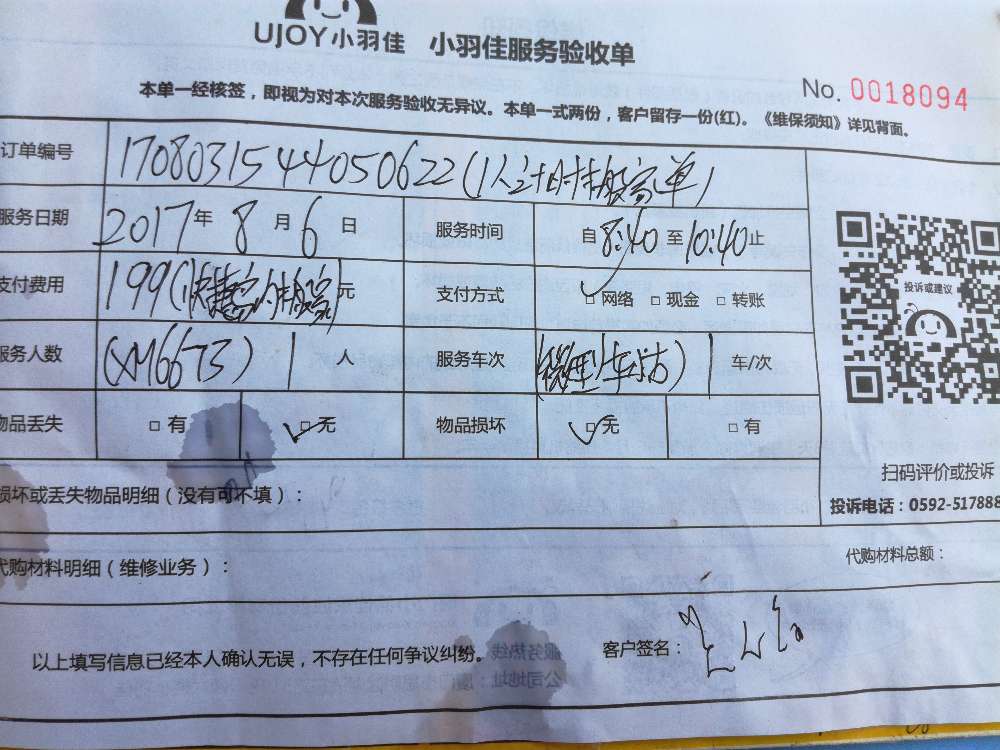 UJOY小羽佳 小羽佳服务验收单
No. 0018094
本单一经核签，即视为对本次服务验收无异议。本单一式两份，客户留存一份(红)。《维保须知》详见背面。
订单编号 1708031544050622(1人计时搬家单)
服务日期 2017年 8 月 6 日 服务时间 自 8:40 至 10:40 止
支付费用 199 元 支付方式 □网络 □现金 □转账
服务人数 (XM6673) 1 人 服务车次 1 车/次
物品丢失 □有 □无 物品损坏 □无 □有
投诉或建议
扫码评价或投诉
投诉电话：0592-517888
损坏或丢失物品明细（没有可不填）：
代购材料明细（维修业务）：
代购材料总额：
以上填写信息已经本人确认无误，不存在任何争议纠纷。
客户签名：